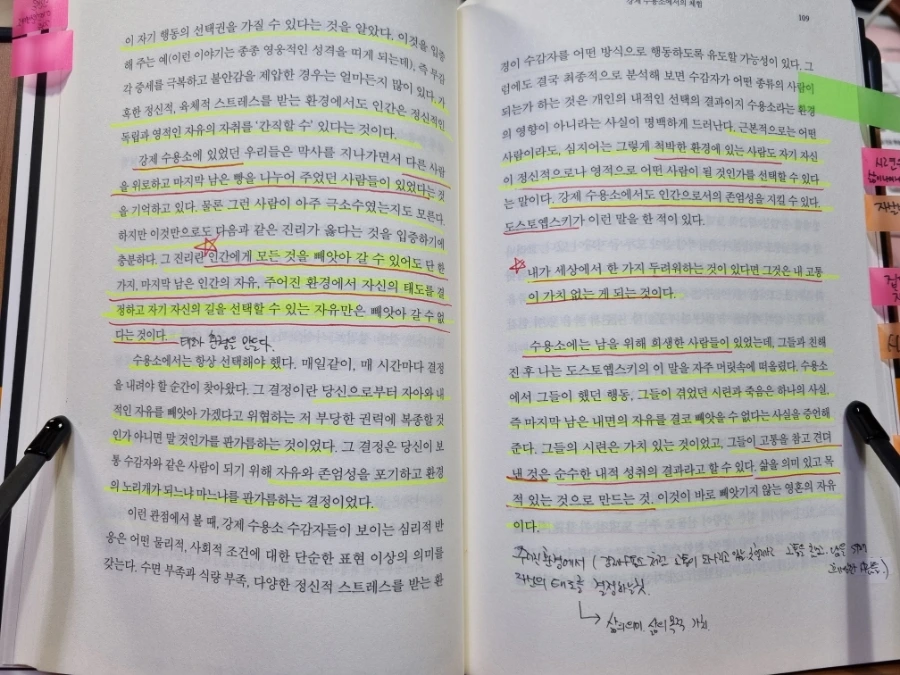 이 자기 행동의 선택권을 가질 수 있다는 것을 알았다. 이것을 입증
해 주는 예(이런 이야기는 종종 영웅적인 성격을 띠게 되는데), 즉 무감
각 증세를 극복하고 불안감을 제압한 경우는 얼마든지 많이 있다. 가
혹한 정신적, 육체적 스트레스를 받는 환경에서도 인간은 정신적인
독립과 영적인 자유의 자취를 '간직할 수' 있다는 것이다.
강제 수용소에 있었던 우리들은 막사를 지나가면서 다른 사람
을 위로하고 마지막 남은 빵을 나누어 주었던 사람들이 있었다는 것
을 기억하고 있다. 물론 그런 사람이 아주 극소수였는지도 모른다.
하지만 이것만으로도 다음과 같은 진리가 옳다는 것을 입증하기에
충분하다. 그 진리란 인간에게 모든 것을 빼앗아 갈 수 있어도 단 한
가지, 마지막 남은 인간의 자유, 주어진 환경에서 자신의 태도를 결
정하고 자기 자신의 길을 선택할 수 있는 자유만은 빼앗아 갈 수 없
다는 것이다.
수용소에서는 항상 선택해야 했다. 매일같이, 매 시간마다 결정
을 내려야 할 순간이 찾아왔다. 그 결정이란 당신으로부터 자아와 내
적인 자유를 빼앗아 가겠다고 위협하는 저 부당한 권력에 복종할 것
인가 아니면 말 것인가를 판가름하는 것이었다. 그 결정은 당신이 보
통 수감자와 같은 사람이 되기 위해 자유와 존엄성을 포기하고 환경
의 노리개가 되느냐 마느냐를 판가름하는 결정이었다.
이런 관점에서 볼 때, 강제 수용소 수감자들이 보이는 심리적 반
응은 어떤 물리적, 사회적 조건에 대한 단순한 표현 이상의 의미를
갖는다. 수면 부족과 식량 부족, 다양한 정신적 스트레스를 받는 환
강제 수용소에서의 체험
109
경이 수감자를 어떤 방식으로 행동하도록 유도할 가능성이 있다. 그
럼에도 결국 최종적으로 분석해 보면 수감자가 어떤 종류의 사람이
되는가 하는 것은 개인의 내적인 선택의 결과이지 수용소라는 환경
의 영향이 아니라는 사실이 명백하게 드러난다. 근본적으로는 어떤
사람이라도, 심지어는 그렇게 척박한 환경에 있는 사람도 자기 자신
이 정신적으로나 영적으로 어떤 사람이 될 것인가를 선택할 수 있다
는 말이다. 강제 수용소에서도 인간으로서의 존엄성을 지킬 수 있다.
도스토옙스키가 이런 말을 한 적이 있다.
내가 세상에서 한 가지 두려워하는 것이 있다면 그것은 내 고통
이 가치 없는 게 되는 것이다.
수용소에는 남을 위해 희생한 사람들이 있었는데, 그들과 친해
진 후 나는 도스토옙스키의 이 말을 자주 머릿속에 떠올렸다. 수용소
에서 그들이 했던 행동, 그들이 겪었던 시련과 죽음은 하나의 사실,
즉 마지막 남은 내면의 자유를 결코 빼앗을 수 없다는 사실을 증언해
준다. 그들의 시련은 가치 있는 것이었고, 그들이 고통을 참고 견뎌
낸 것은 순수한 내적 성취의 결과라고 할 수 있다. 삶을 의미 있고 목
적 있는 것으로 만드는 것, 이것이 바로 빼앗기지 않는 영혼의 자유
이다.
주어진 환경에서
자신의 태도를 결정하는 것.
삶의 의미 삶의 목적 가치.